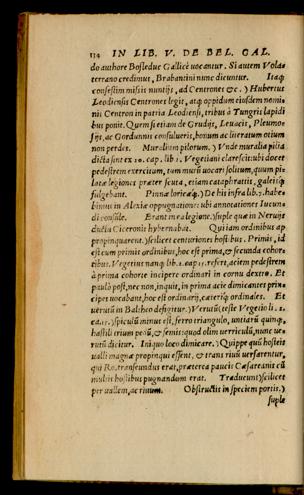 114 IN LIB. V. DE BEL. GAL.
do authore Bosleduc Gallicè uocantur. Si autem Vola⸗
terrano credimus, Brabantini nunc dicuntur. Itaq;
confestim misit nuntijs, ad Centrones &c.) Hubertus
Leodiensis Centrones legit, atq; oppidum eiusdem nomi⸗
nis Centron in patria Leodiensi, tribus à Tungris lapidi
bus ponit. Quem si etiam de Grudijs, Leuacis, Pleumo⸗
sijs, ac Gordunnis consulueris, bonam ac literatum otium
non perdes. Muralium pilorum.) Vnde muralia pilia
dicta sint ex 10. cap. lib. 1. Vegetiani clarescit: ubi docet
pedestrem exercitum, tum muri uocari solitum, quum pi⸗
latæ legiones præter scuta, etiam cataphractis, galeisq;
fulgebant. Pinnæ loricæq;) De his infra lib. 7. habe⸗
bimus in Alexiæ oppugnatione: ubi annotationes Iucun⸗
di consule. Erant in ea legione.) suple quæ in Neruijs
ductu Ciceronis hybernabat. Qui iam ordinibus ap
propinquarent.) scilicet centuriones hostibus. Primis, id
est cum primis ordinibus, hoc est prima, & secunda cohor⸗
tibus. Vegetius nanq; lib. 2. cap. 15. refert, aciem pedestrem
à prima cohorte incipere ordinari in cornu dextro. Et
paulò post, nec non, inquit, in prima acie dimicantes prin⸗
cipes uocabant, hoc est ordinarij, cæteriq; ordinales. Et
uerutũ in Baltheo defigitur.) Verutũ (teste Vegetio li. 2.
ca. 15.) spiculũ minus est, ferro triangulo, untiarũ quinq;,
hastili trium pedũ, & semis: quod olim uerriculũ, nunc ue⸗
rutũ dicitur. Iniquo loco dimicare.) Quippe quũ hosteis
ualli magnæ propinqui essent, & trans riuũ uersarentur,
qui Ro. transeundus erat, præterea paucis Cæsareanis cũ
multis hostibus pugnandum erat. Traducunt) scilicet
per uallem, ac riuum. Obstructis in speciem portis.)
suple